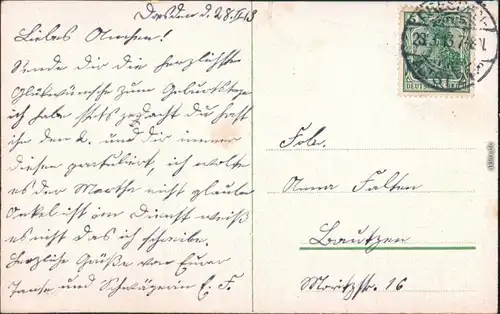 Dresden d. 28.II.13
Liebes Annchen!
Sende dir die herzlichste
Glückwünsche zum Geburtstage
ich habe stets gedacht du hast
ihn den 2. und dir immer
diesen gratuliert, ich wollte
es der Marthe nicht glauben
Anklicht im Dienst weiß
es nicht das ich schreibe.
Herzliche Grüße von Eurer
Tante und Schwägerin E. F.
DEUTSCHES REICH
Frln.
Anna Falten
Bautzen
Moritzstr. 16